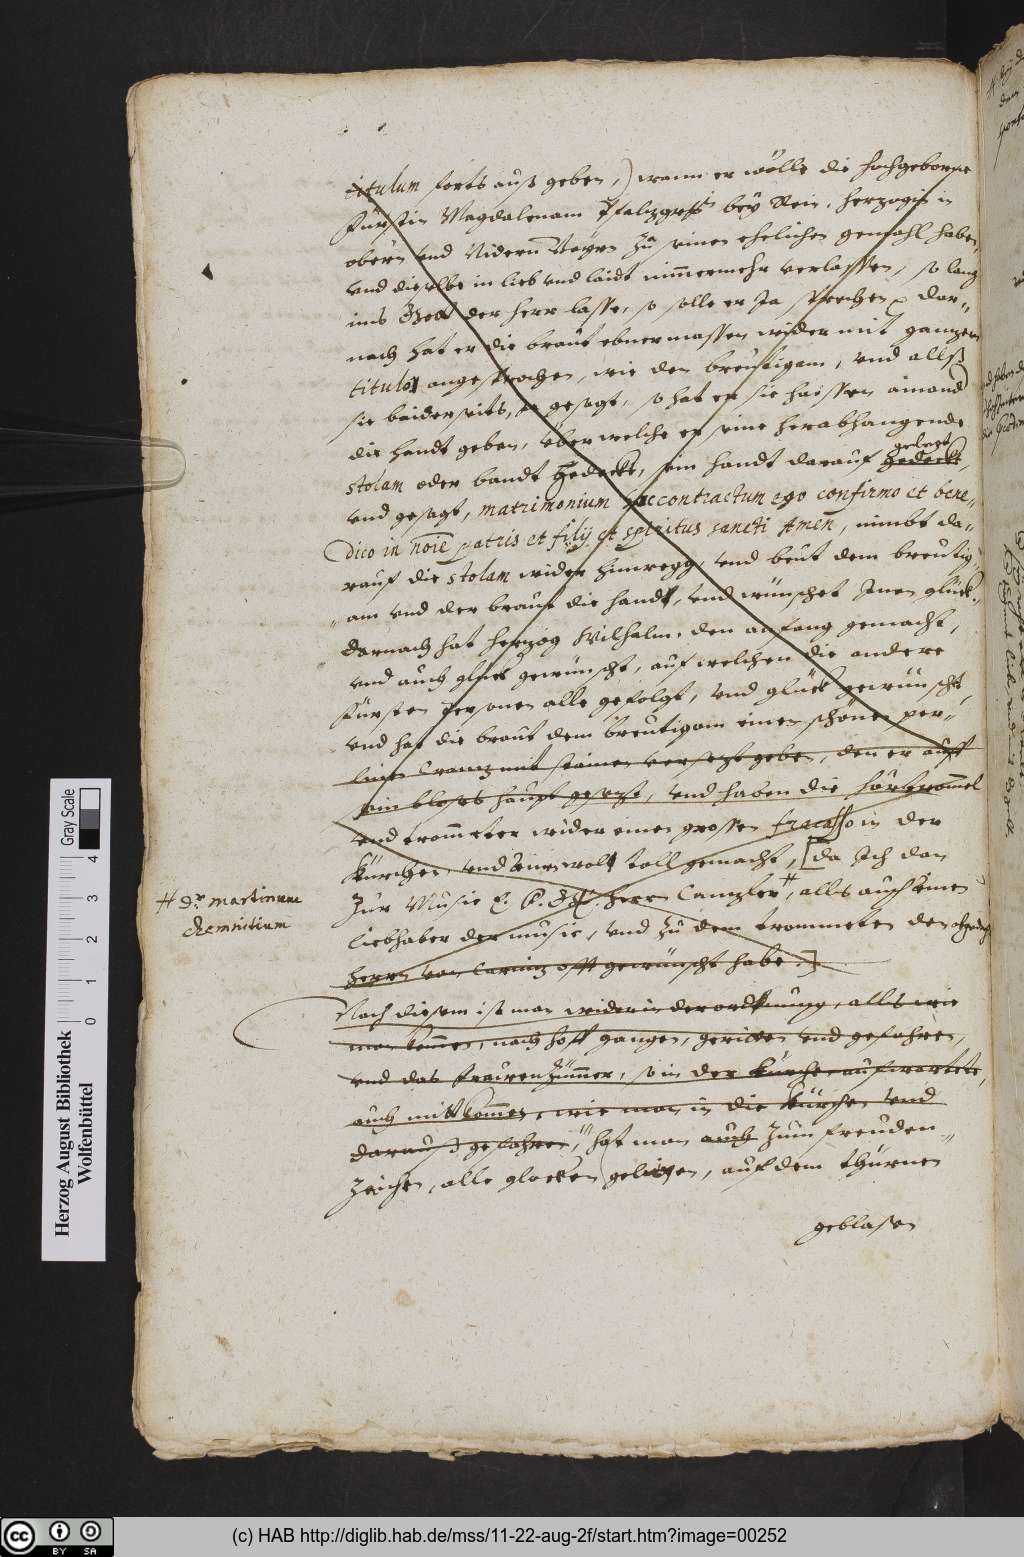 titulum forts auß geben,) wann er wölle die hochgeborne
Fürstin Magdalenam Pfaltzgrefin bey Rein, herzogin in
obern vnd Nidern Bayrn zu seinen ehelichen gemahl haben,
vnd dieselbe in lieb vnd laidt nimmermehr verlassen, so lang
ims Gott der herr lasse, so solle er Ja sprechen, dar-
nach hat er die braut ebnermassen wider mit ganzem
titulo angesprochen, wie den breutigam, vnd allß
sie beiderseits, Ja gesagt, so hat er sie haissen ainand
die handt geben, über welche er seine herabhangende
gelegt
stolam oder bandt gedeckt, sein handt darauf gedeckt,
vnd gesagt, matrimonium hoc contractum ego confirmo et bene-
dico in noie patris et filij et spiritus sancti Amen, nimbt da-
rauf die stolam wider hinwegg, vnd beut dem breutig-
am vnd der braut die handt, vnd wünschet Inen glück
darnach hat herzog Wilhalm, den anfang gemacht,
vnd auch glück gewünscht, auf welchen die andere
Fürsten Personen alle gefolgt, vnd glück gewünscht,
vnd hat die braut dem breutigam einen schönen per-
linen Cranz mit stainen versezt geben, den er auff
sein bloses haupt gesezt, vnd haben die hörtrommel
vnd trommeter wider einen grossen fracasso in der
Kürchen, vnd Kürwolt toll gemacht, [da Ich dan
zur Music E. F. G. herrn Canzler #, alls auch einen
liebhaber der music, vnd zu dem trommeten den
herrn von offt gewünscht habe.]
# Dr. martinum
chemnitium
Nach diesem ist man wider in der ordnung, alls wie
man kommen, nach hoff gangen, geritten vnd gefahren,
vnd das frauenzimmer, so in der Kürchen aufwartete,
auch mitkommen, wie man in die Kürchen vnd
darauß gefahren, hat man auch zum freuden-
zeichen, alle glocken geleitten, auf dem thürnen
geblasen
Herzog August Bibliothek
Wolfenbüttel
Gray Scale
0 1 2 3 4
(c) HAB http://diglib.hab.de/mss/11-22-aug-2f/start.htm?image=00252
cc BY SA